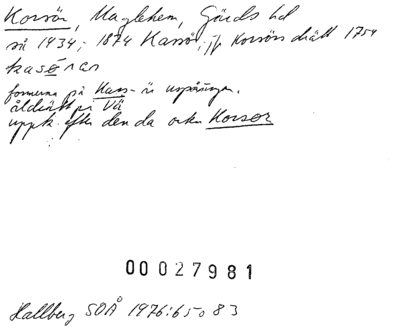 Korsör, Maglehem, Gärds hd
så 1934; 1874 Karsör; jfr Korsörs drätt 1754
kasə́rar
formerna på Kars- är urspr.
åldrätt på Vä
uppk. efter den da orten Korsør
00027981
Hallberg SOÅ 1976:65 o 83